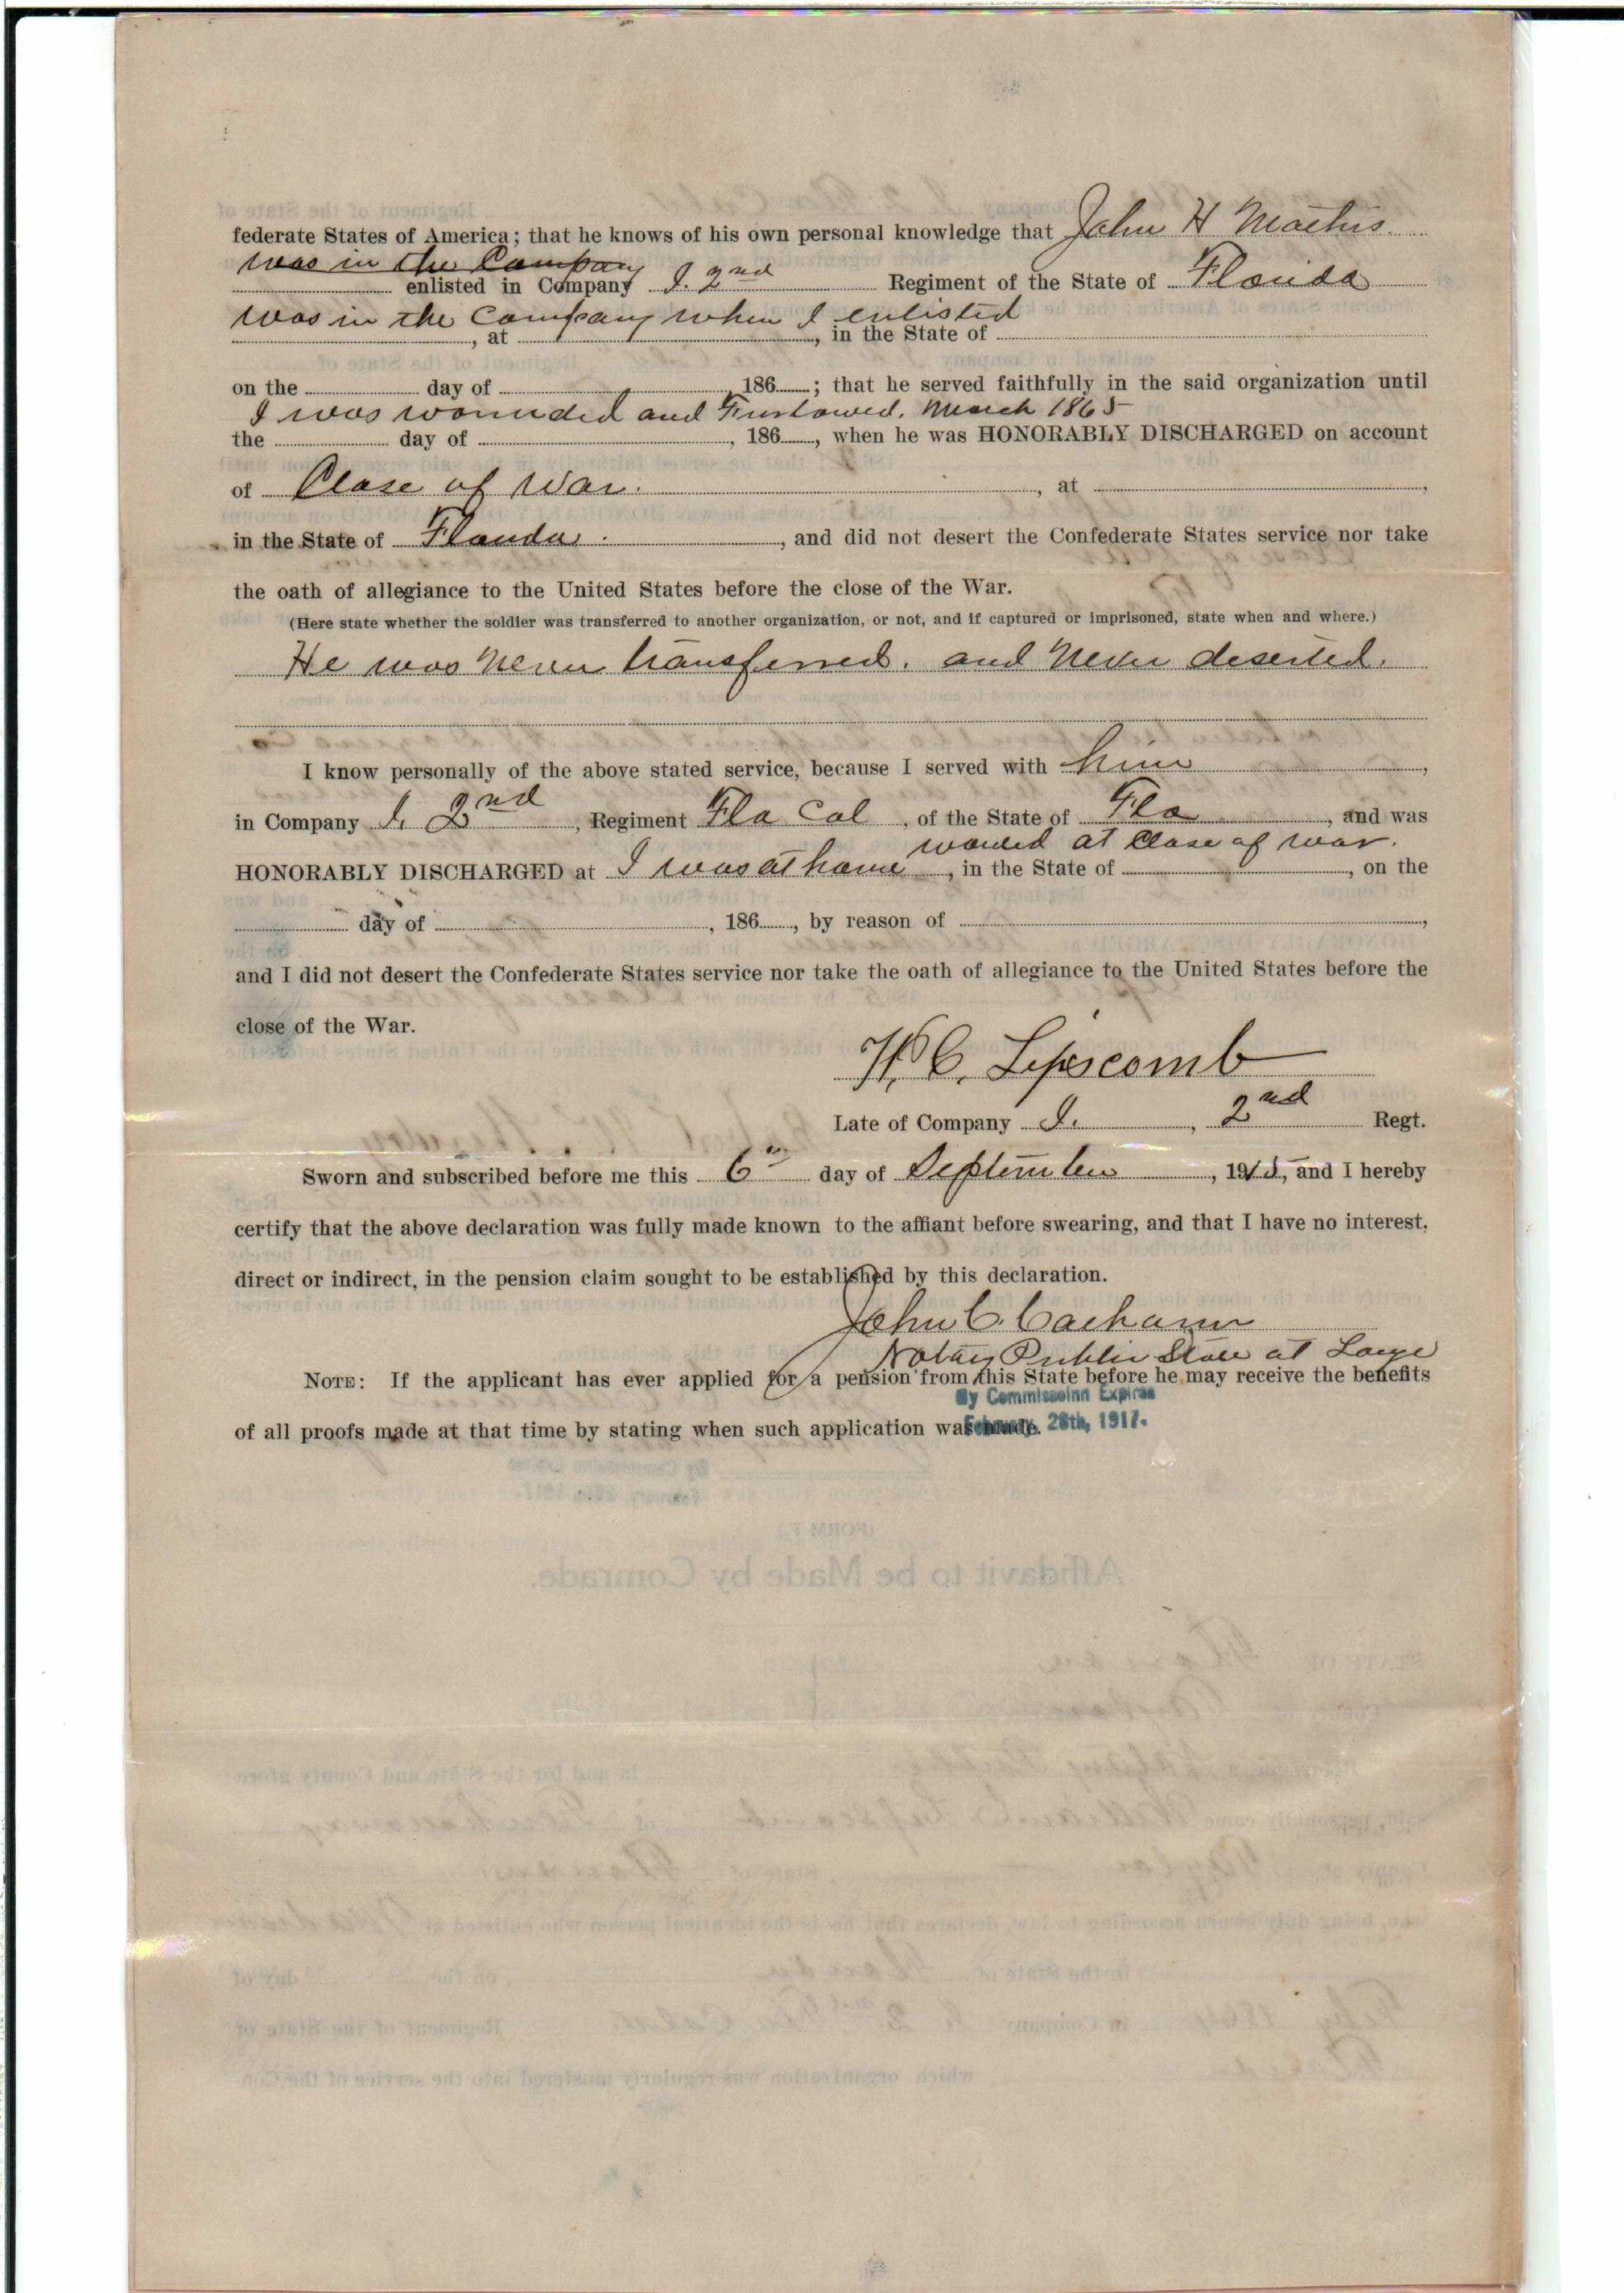 federate States of America; that he knows of his own personal knowledge that John H Mathis
was in the Company
enlisted in Company I. 2nd Regiment of the State of Florida
was in the Company when I enlisted
, at , in the State of
on the day of , 186 ; that he served faithfully in the said organization until
I was wounded and Furlowed. March 1865
the day of , 186 , when he was HONORABLY DISCHARGED on account
of Close of War. , at ,
in the State of Florida. , and did not desert the Confederate States service nor take
the oath of allegiance to the United States before the close of the War.
(Here state whether the soldier was transferred to another organization, or not, and if captured or imprisoned, state when and where.)
He was Never transferred. and Never deserted.
I know personally of the above stated service, because I served with him ,
in Company I. 2nd , Regiment Fla Cal , of the State of Fla , and was
at Close of war.
HONORABLY DISCHARGED at I was at home , in the State of , on the
day of , 186 , by reason of ,
and I did not desert the Confederate States service nor take the oath of allegiance to the United States before the
close of the War.
W. C. Lipscomb
Late of Company I. , 2nd Regt.
Sworn and subscribed before me this 6th day of September , 1915, and I hereby
certify that the above declaration was fully made known to the affiant before swearing, and that I have no interest,
direct or indirect, in the pension claim sought to be established by this declaration.
John C. Calhoun
Notary Public State at Large
NOTE: If the applicant has ever applied for a pension from this State before he may receive the benefits
My Commissoinn Expires
of all proofs made at that time by stating when such application was made.
February 28th, 1917.